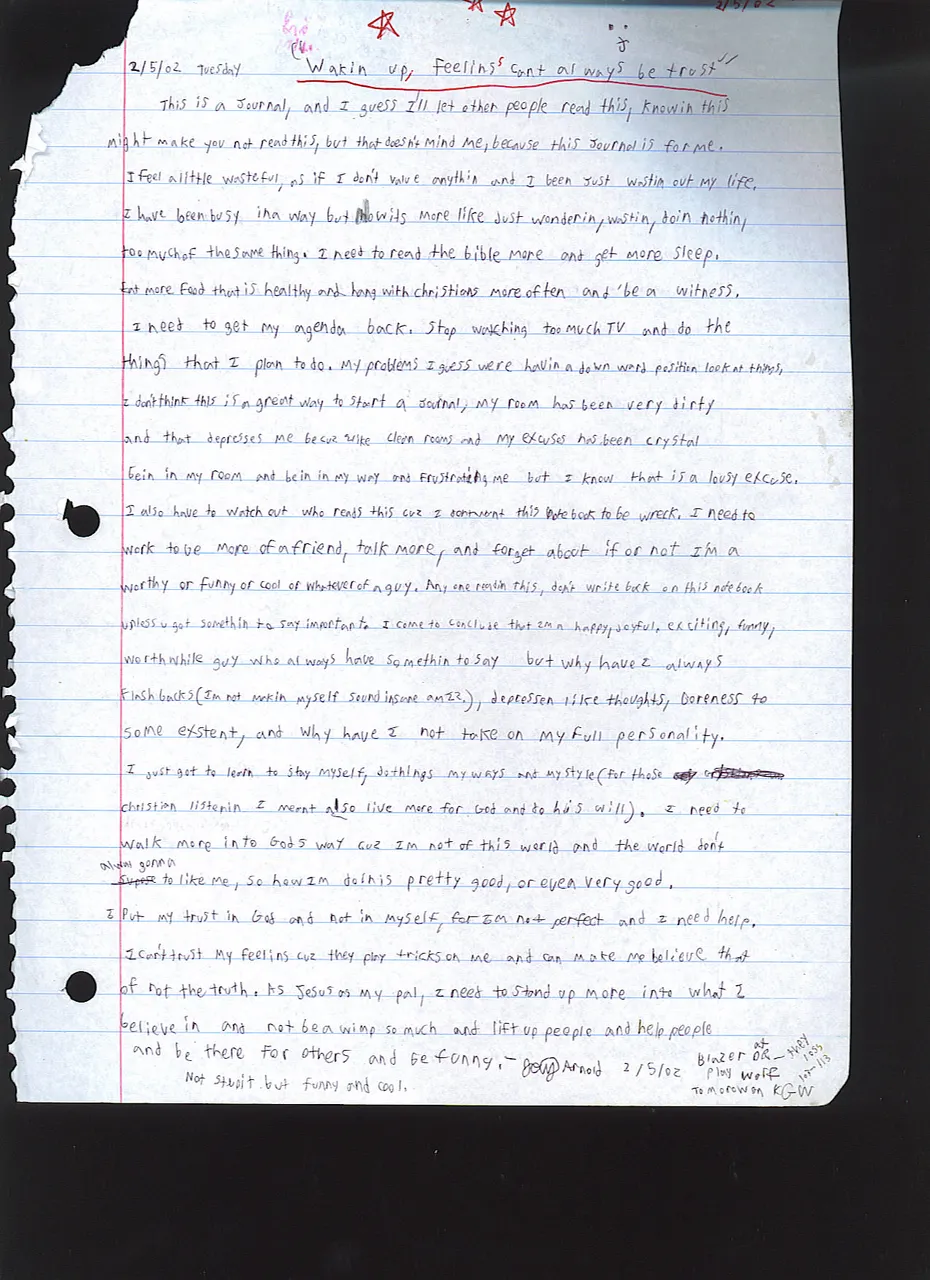 2/5/02
2/5/02 Tuesday "Wakin up, Feelings cant always be trust"
This is a Journal, and I guess I'll let other people read this, knowin this
might make you not read this, but that doesn't mind me, because this Journal is for me.
I feel a little wasteful, as if I don't value anythin and I been Just wastin out my life.
I have been busy in a way but now its more like Just wonderin, wastin, doin nothin,
too much of the same thing. I need to read the bible more and get more sleep.
Eat more food that is healthy and hang with christians more often and be a witness.
I need to get my agenda back. Stop watching too much TV and do the
things that I plan to do. My problems I guess were havin a down ward position look at things,
I don't think this is a great way to start a Journal, my room has been very dirty
and that depresses me becuz I like clean rooms and my excuses has been crystal
bein in my room and bein in my way and Frustrating me but I know that is a lousy excuse.
I also have to watch out who reads this cuz I dont want this notebook to be wreck. I need to
work to be more of a friend, talk more, and forget about if or not I'm a
worthy or funny or cool or whatever of a guy. Any one readin this, don't write back on this notebook
unless u got somethin to say important. I come to conclude that Im a happy, joyful, exciting, funny,
worthwhile guy who always have somethin to say but why have I always
Flash backs (I'm not makin myself sound insane am I?.), depressen like thoughts, boreness to
some existent, and why have I not take on my full personality.
I Just got to learn to stay myself, do things my ways and my style (for those
christian listenin I meant also live more for God and do his will). I need to
walk more into Gods way cuz Im not of this world and the world don't
always gonna
to like me, so how Im doin is pretty good, or even very good.
I Put my trust in God and not in myself, for Im not perfect and I need help.
I can't trust my feelins cuz they play tricks on me and can make me believe that
of not the truth. As Jesus as my pal, I need to stand up more into what I
believe in and not be a wimp so much and lift up people and help people
and be there for others and be funny. - Arnold 2/5/02
Not stupit but funny and cool.
Blazer at
play wolf
Tomorow on KGW
they
loss
102-113